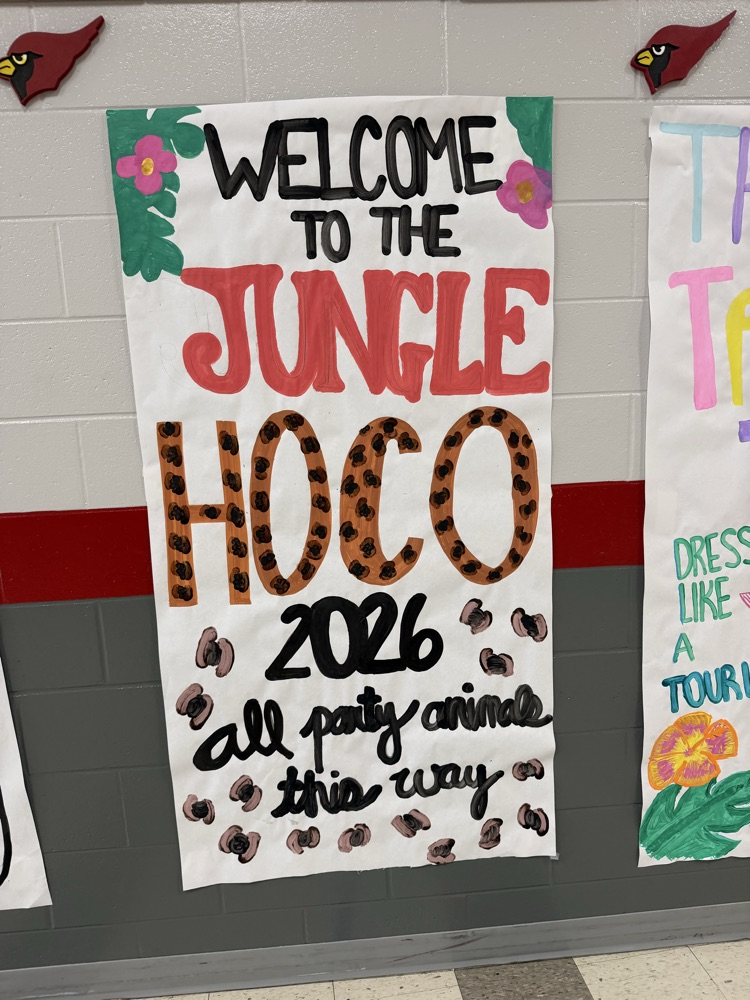 WELCOME
TO THE
JUNGLE
HOCO
2026
all party animals
this way
DRESS
LIKE
A